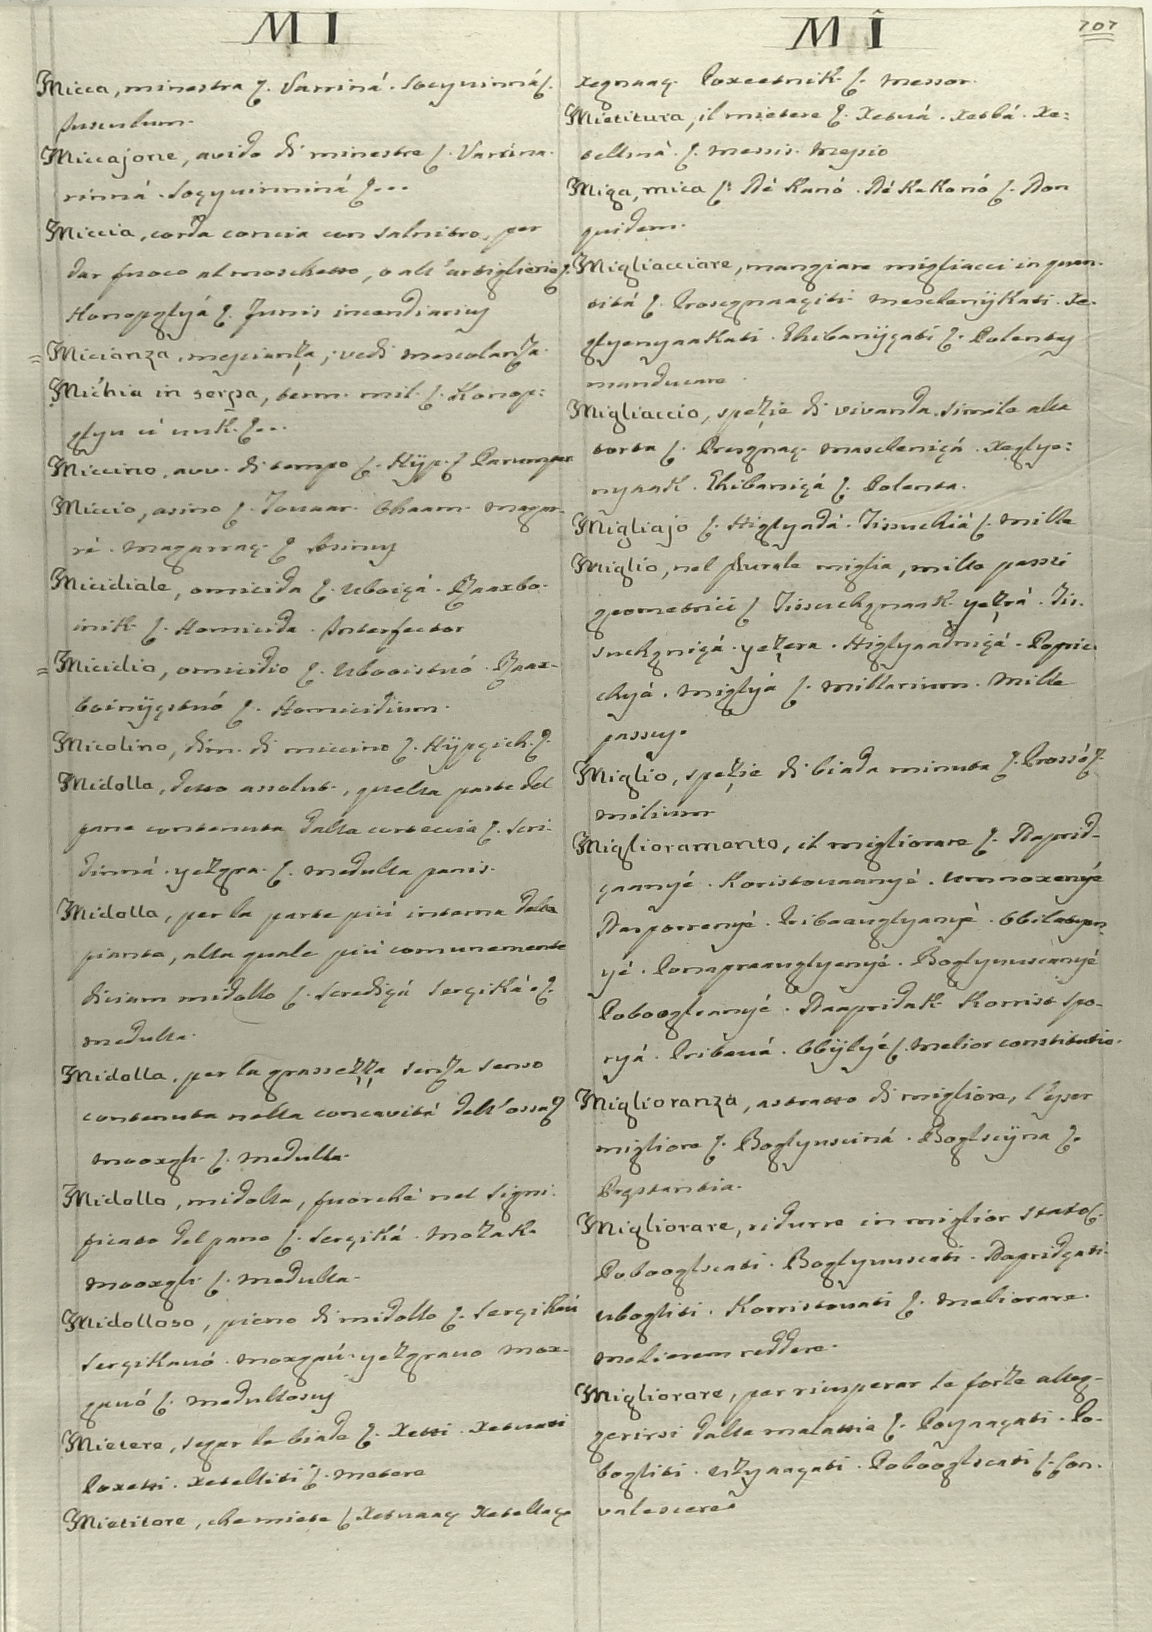 MI
Micca, minestra ſ. Varriná. Socyuinná ſ.
Jusculum.
Miccajone, avido di minestre ſ. Varrina-
rinná. Socyuinniná ſ...
Miccia, corda concia con salnitro, per
dar fuoco al moschetto, o all'artiglieria ſ.
Konopglyá ſ. Funis incendiarius
= Micianza, mescianza, vedi mescolanza.
Michia in serpa, term. mil. ſ. Konop-
glyu ú
Miccino, avv. di tempo ſ. Hÿp. ſ Parumper
Miccio, asino ſ. Tovaar. Osaam. Magar-
ré. Magarraç ſ Asinus
Micidiale, omicida ſ. Uboiçá. Raazbo-
inik ſ. Homicida. Interfector
= Micidio, omicidio ſ. Uboistuó. Raaz-
boinÿçstuó ſ. Homicidium.
Micolino, dim. di miccino ſ. Hÿpçich. ſ.
Midolla, detto assolut., quella parte del
pane contenuta dalla corteccia ſ. Sri-
dinná. yezgra. ſ. medulla panis.
Midolla, per la parte piú interna delle
piante, alla quale piú comunemente
diciam midollo ſ. Scrediçá Sergiká. ſ.
medulla.
Midolla, per la grassezza senza senso
contenuta nella concavitá dell'ossa ſ
mooxgh. ſ. medulla.
Midollo, midolla, fuorché nel signi-
ficato del pane ſ. Sergiká. Mozak.
mooxgh. ſ. medulla.
Midolloso, pieno di midollo ſ. Sergikaú
Sergikauó. moxgaú. yezgrauo mox-
gauó ſ. medullosus
Mietere, segar le biade ſ. Xetti. Xetuati
Poxetti. Xetelliti ſ. metere
Mietitore, che miete ſ. Xetuaaç Xetellaç
MI
707
xegnaaç. Poxeetnik. ſ. messor.
Mietitura, il mietere ſ. Xetuá. Xetbá. Xe-
tellná. ſ. messis. messio
Miga, mica ſ. Né Kanó. Né Kakonó ſ. Non
quidem.
Migliacciare, mangiare migliacci in quan-
titá ſ. Prosegnaaçiti. Masclenÿkati. Xe-
glyenyaakati. Ehibanÿçati ſ. Polentas
manducare.
Migliaccio, spezie di vivanda simile alla
torta ſ. Prosgnaç. Mascleniçá. Xeglye-
nyaak. Ehibaniçá ſ. Polenta.
Migliajo ſ. Higlyadá. Tissuchiá ſ. mille
Miglio, nel plurale miglia, mille passi
geometrici ſ Tissuchgnaak. yezrá. Tis-
suchgniçá. yezera. Higlyaadniçá. Popric-
chyá. Miglyá ſ. milliarium. Mille
passus.
Miglio, spezie di biada minuta ſ. Prossó ſ.
milium
Miglioramento, il migliorare ſ. Naprid-
gaanyé. Koristouaanyé. Umnoxenyé
Nasporrenyé. Pribaauglyanyé. Obilatyen-
yé. Ponapraauglyenyé. Boglyuuscanyé
Poboogscanyé. Naapridak. Korrist Spo-
ryá. Pribauá. Obÿlyé ſ. melior constitutio.
Miglioranza, astratto di migliore, l'esser
migliore ſ. Boglyusciná. Boglscÿna ſ.
Præstantia.
Migliorare, ridurre in miglior stato ſ.
Poboogscati. Boglyuuscati. Napridgati.
Ubogliti. Korristouati ſ. meliorare.
meliorem reddere.
Migliorare, per ricuperar le forze alleg-
gerirsi dalla malattia ſ. Poyaaçati. Po-
bogliti. Uzyaaçati. Poboogscati ſ. Con-
valescere